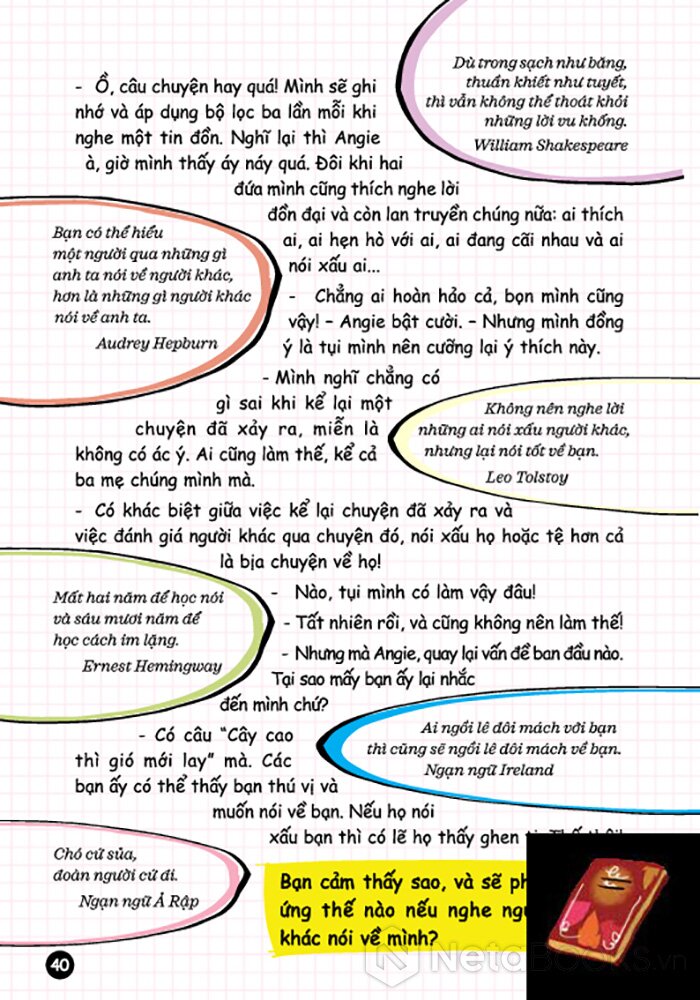 - Ồ, câu chuyện hay quá! Mình sẽ ghi
nhớ và áp dụng bộ lọc ba lần mỗi khi
nghe một tin đồn. Nghĩ lại thì Angie
à, giờ mình thấy áy náy quá. Đôi khi hai
đứa mình cũng thích nghe lời
đồn đại và còn lan truyền chúng nữa: ai thích
ai, ai hẹn hò với ai, ai đang cãi nhau và ai
nói xấu ai...
Dù trong sạch như băng,
thuần khiết như tuyết,
thì vẫn không thể thoát khỏi
những lời vu khống.
William Shakespeare
Bạn có thể hiểu
một người qua những gì
anh ta nói về người khác,
hơn là những gì người khác
nói về anh ta.
Audrey Hepburn
- Chẳng ai hoàn hảo cả, bọn mình cũng
vậy! – Angie bật cười. – Nhưng mình đồng
ý là tụi mình nên cưỡng lại ý thích này.
- Mình nghĩ chẳng có
gì sai khi kể lại một
chuyện đã xảy ra, miễn là
không có ác ý. Ai cũng làm thế, kể cả
ba mẹ chúng mình mà.
Không nên nghe lời
những ai nói xấu người khác,
nhưng lại nói tốt về bạn.
Leo Tolstoy
- Có khác biệt giữa việc kể lại chuyện đã xảy ra và
việc đánh giá người khác qua chuyện đó, nói xấu họ hoặc tệ hơn cả
là bịa chuyện về họ!
Mất hai năm để học nói
và sáu mươi năm để
học cách im lặng.
Ernest Hemingway
- Nào, tụi mình có làm vậy đâu!
- Tất nhiên rồi, và cũng không nên làm thế!
- Nhưng mà Angie, quay lại vấn đề ban đầu nào.
Tại sao mấy bạn ấy lại nhắc
đến mình chứ?
Ai ngồi lê đôi mách với bạn
thì cũng sẽ ngồi lê đôi mách về bạn.
Ngạn ngữ Ireland
- Có câu “Cây cao
thì gió mới lay” mà. Các
bạn ấy có thể thấy bạn thú vị và
muốn nói về bạn. Nếu họ nói
xấu bạn thì có lẽ họ thấy ghen
Chó cứ sủa,
đoàn người cứ đi.
Ngạn ngữ Ả Rập
Bạn cảm thấy sao, và sẽ
ứng thế nào nếu nghe
khác nói về mình?
40
NetaBooks.vn